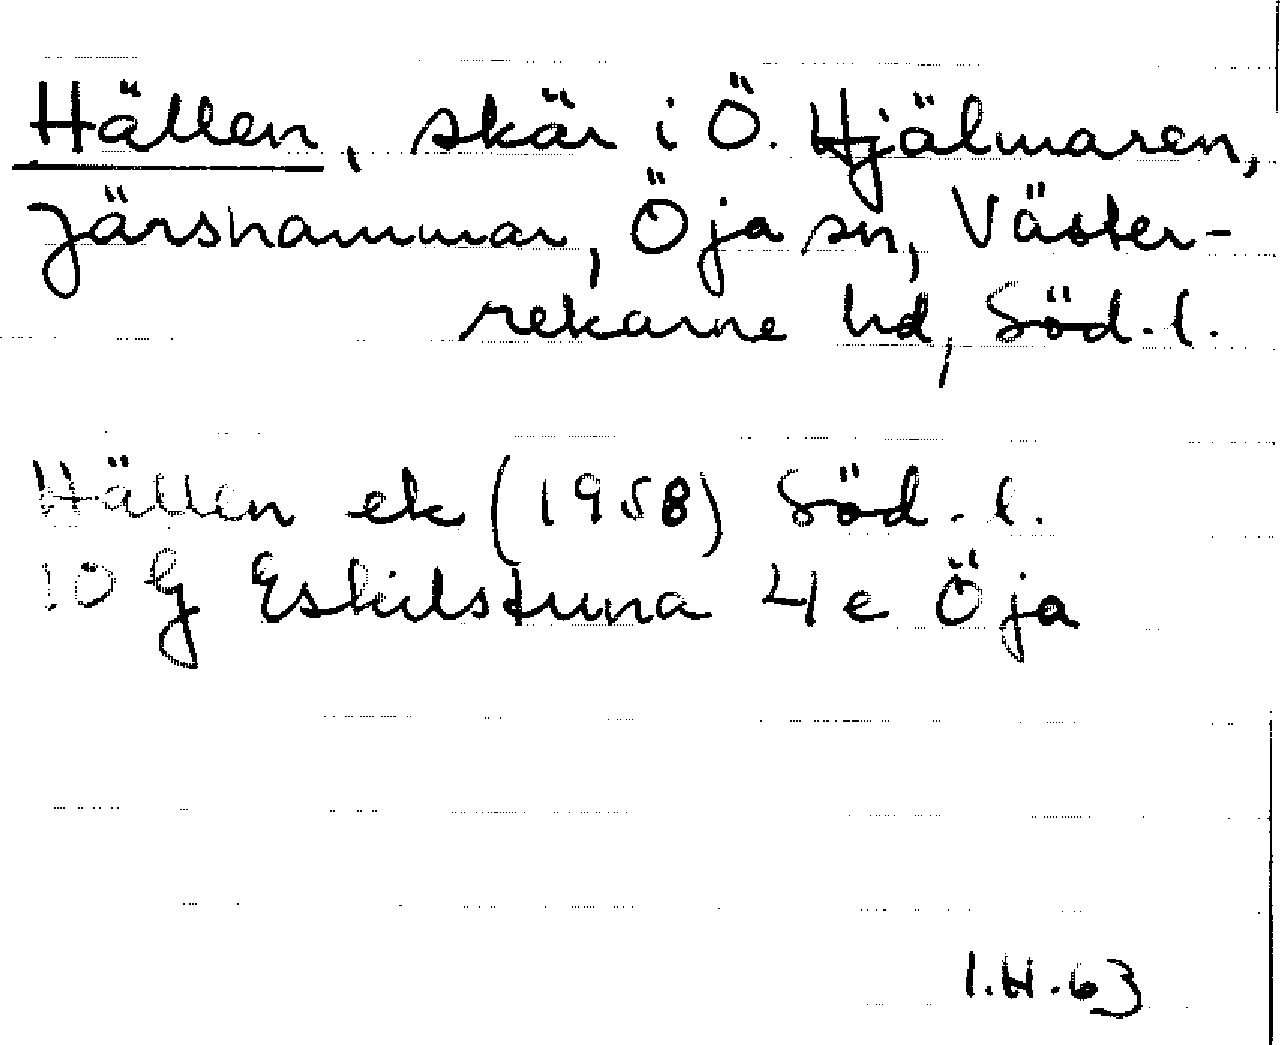 Hällen, skär i Ö. Hjälmaren,
Järshammar, Öja sn, Väster-
rekarne hd, Söd. l.
Hällen ek (1958) Söd. l.
10 G Eskilstuna 4 e Öja
I.H. 63